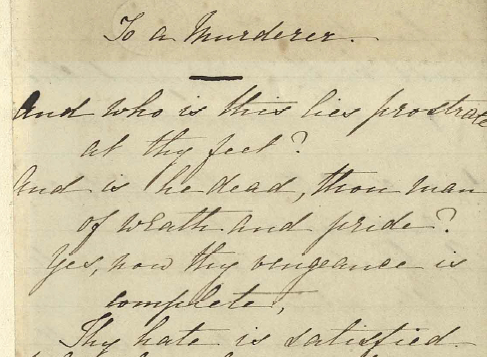 To a Murderer.
And who is this lies prostrate
at thy feet?
And is he dead, thou man
of wrath and pride?
Yes, now thy vengeance is
complete,
Thy hate is satisfied.